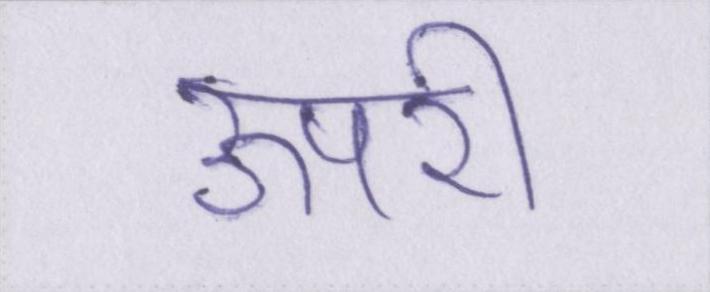 ऊपरी